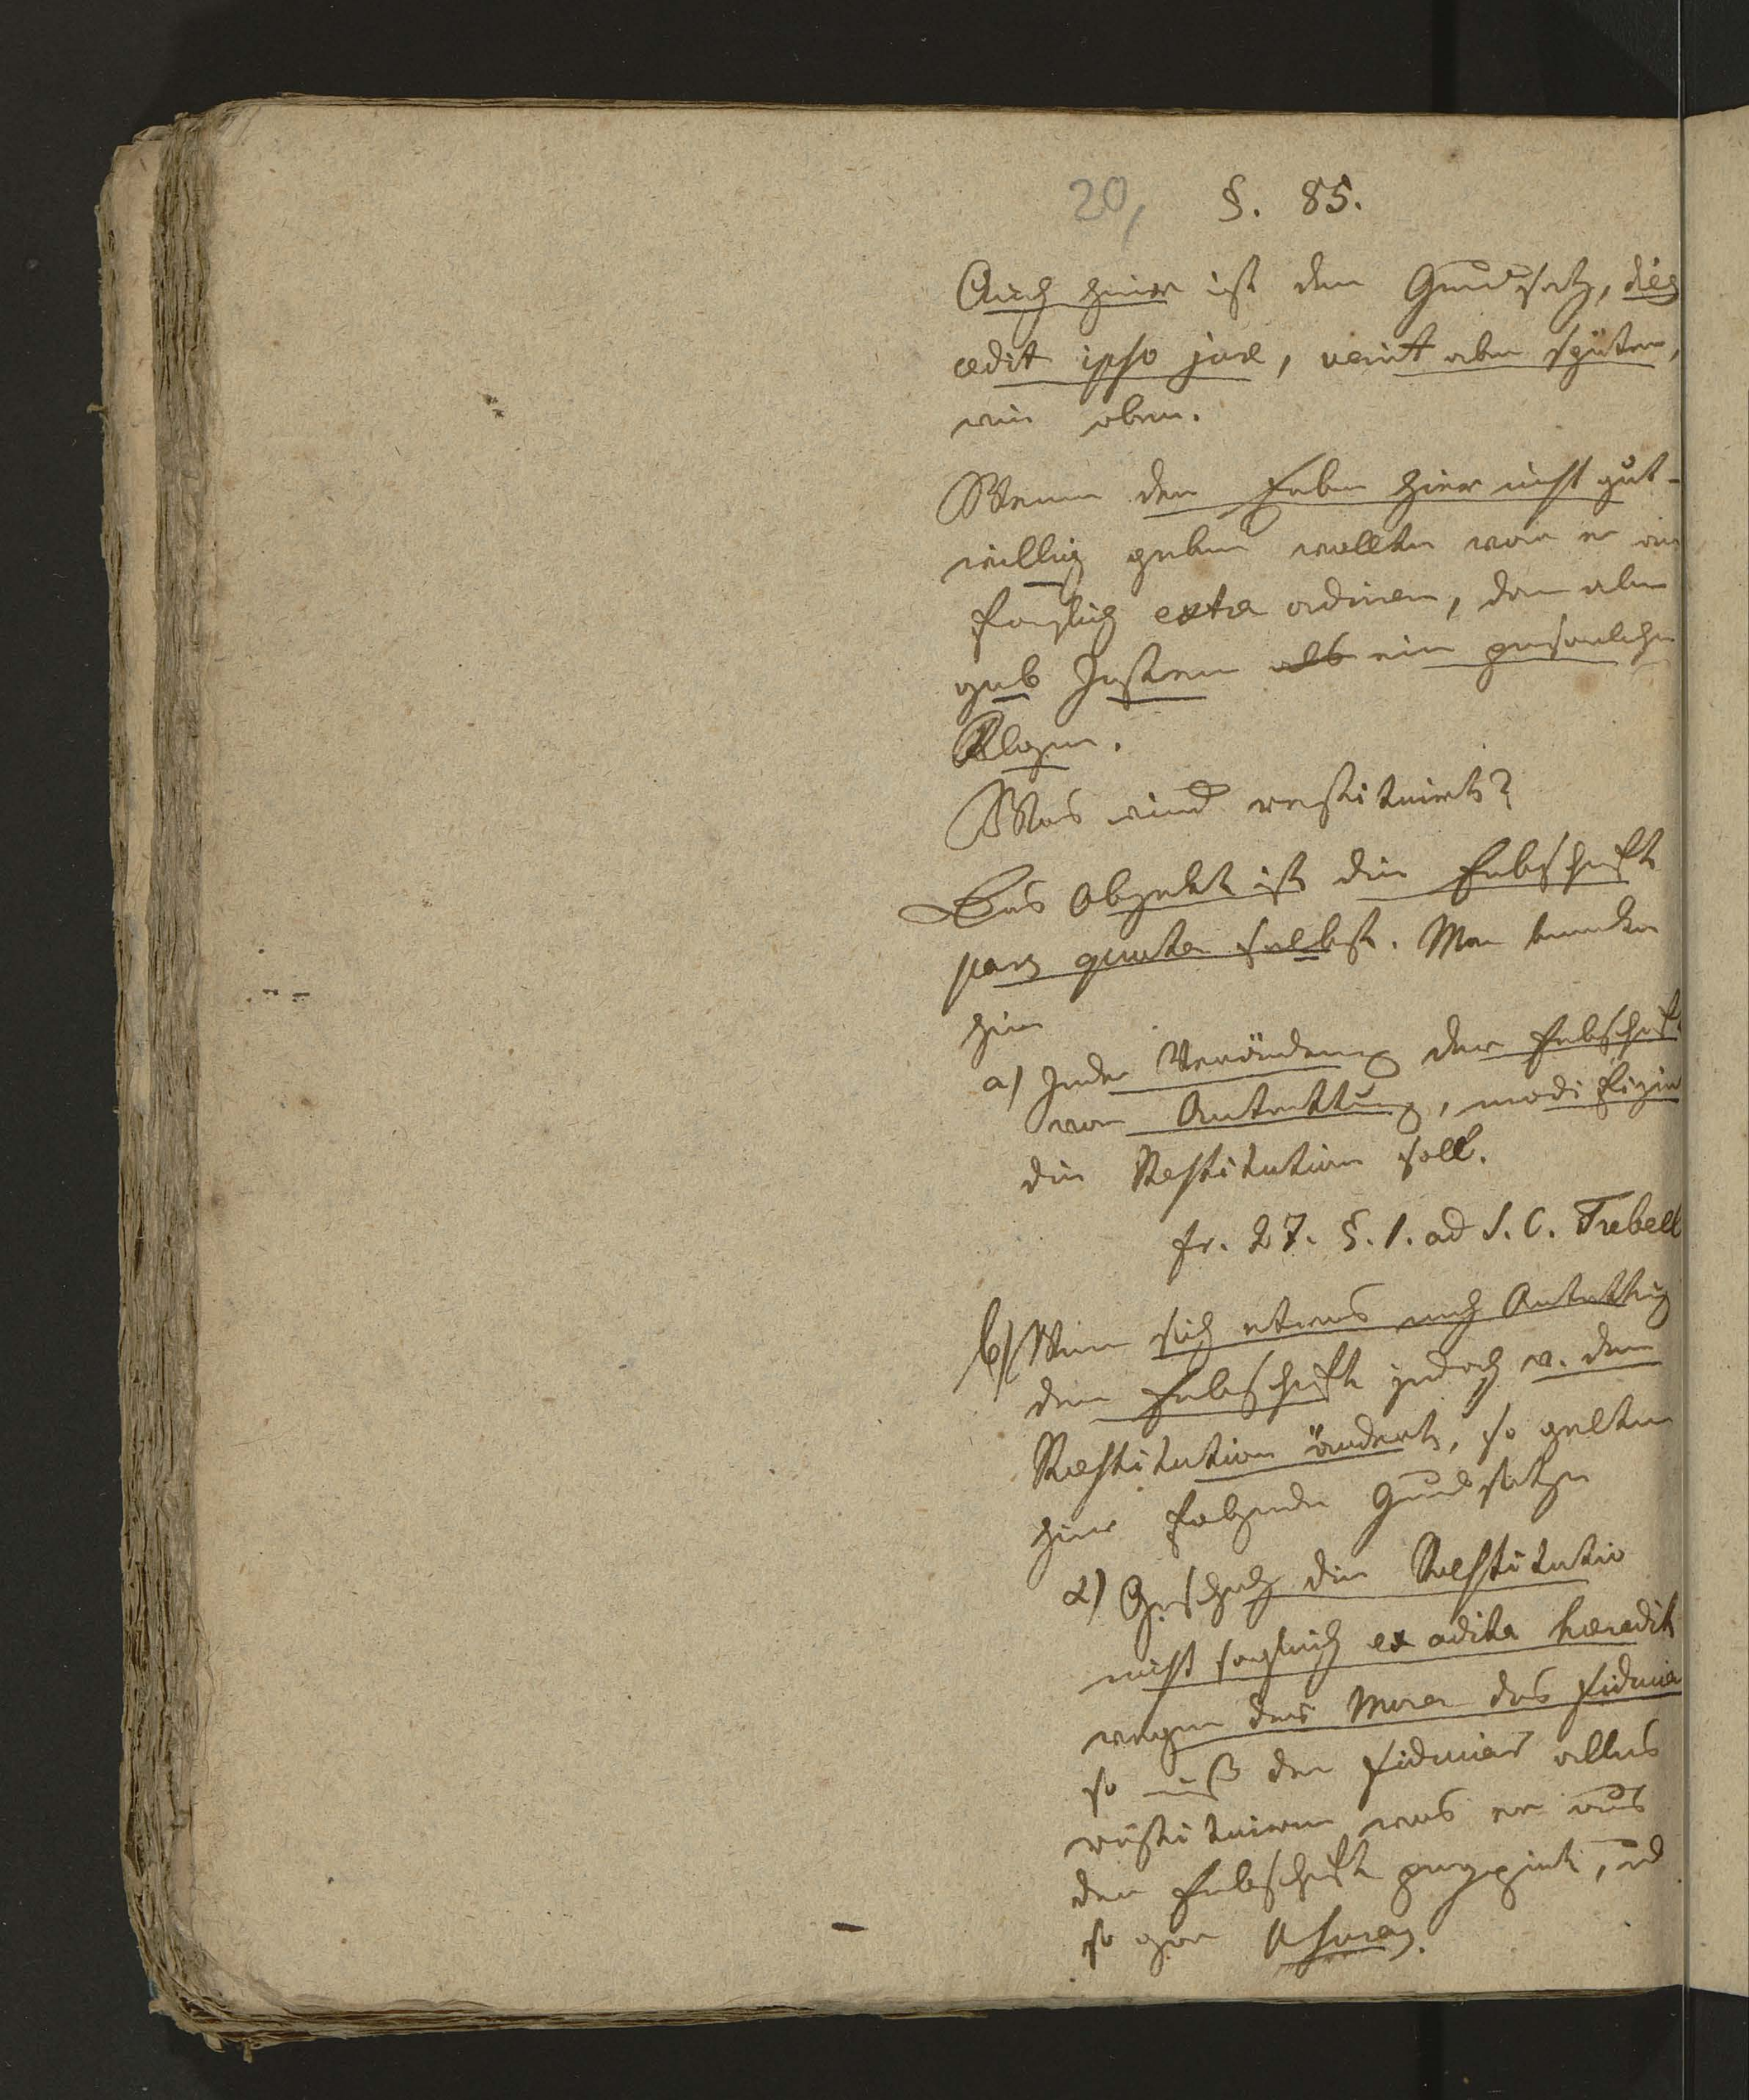 20, §. 85.
Auch hier ist der Grundsatz, dies
cedit ipso jure, venit aber später,
wie oben.
Wenn der Erbe hier nicht gut-
willig geben wollte war er an
fänglich extra ordinem, dan aber
gab Justin als ein persönliche
Klage.
Was wird restituirt?
Das Objekt ist die Erbschaft
pars quota selbst. Man bemerke
hier
a) Jede Veränderung der Erbschaft
vor Antrettung, modifizir
die Restitution soll.
fr. 27. §. 1. ad S. C. Trebell
b) Wenn sich etwas nach Antrettung
der Erbschaft jedoch v. dem
Restitution ändert, so gelten
hier folgende Grundsätze
α) Geschah die Restitutio
nicht sogleich ex adita heredit
wegen der Mora des Fiduciar
so muß der Fiduciar alles
restituiren was er aus
der Erbschaft percipirt, und
so gar Usuras.